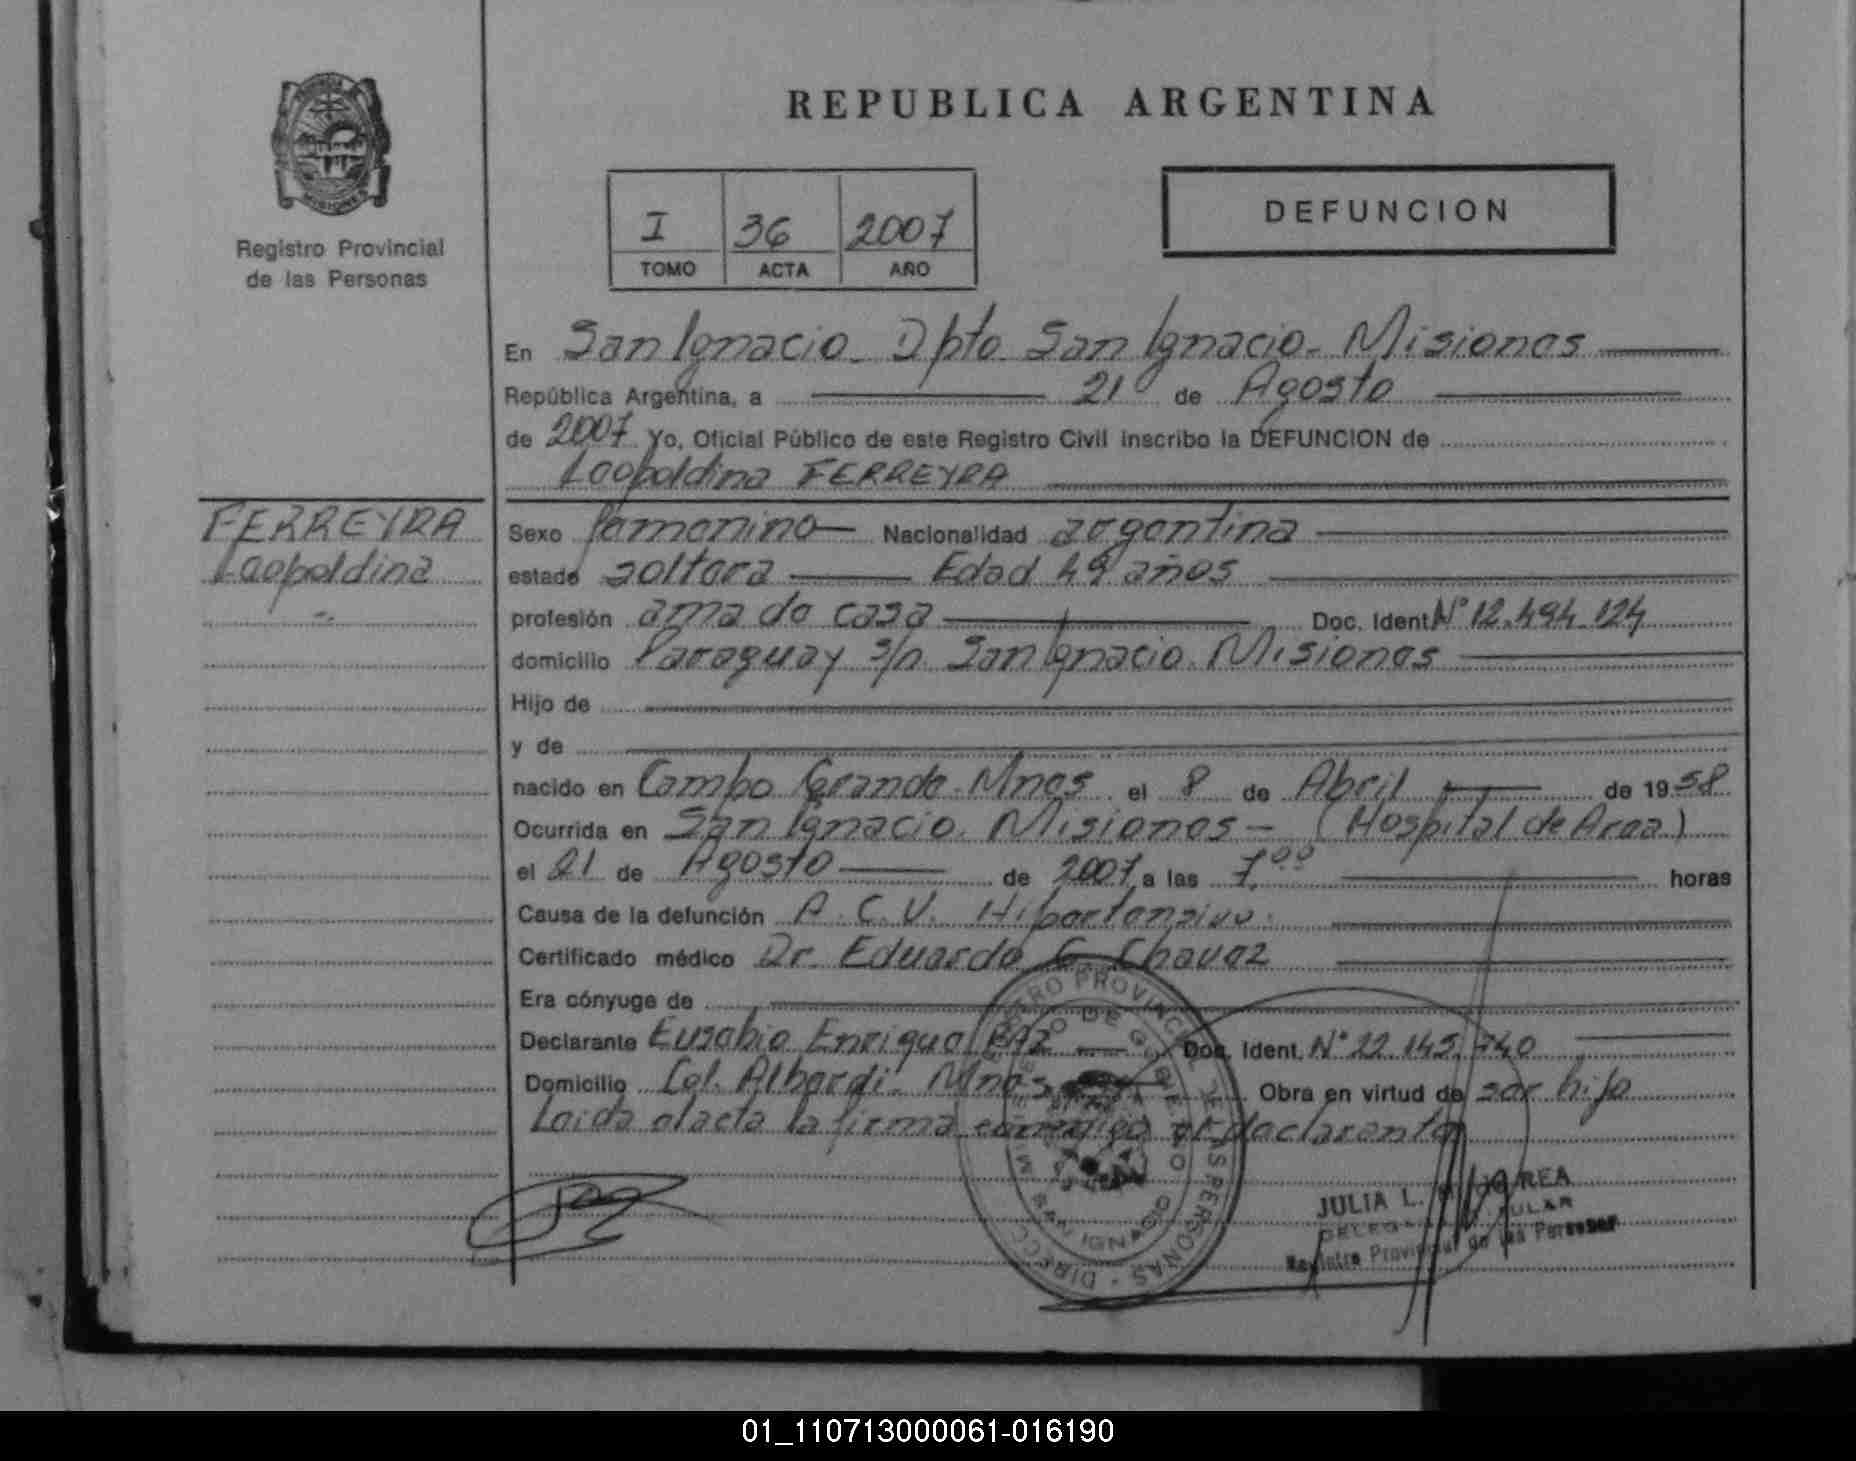 REPUBLICA ARGENTINA
PROVINCIA
MISIONES
Registro Provincial
de las Personas
I 36 2007
TOMO ACTA AÑO
DEFUNCION
En San Ignacio - Dpto San Ignacio - Misiones
República Argentina, a 21 de Agosto
de 2007 Yo, Oficial Público de este Registro Civil inscribo la DEFUNCION de
Leopoldina FERREYRA
FERREYRA
Leopoldina
Sexo femenino Nacionalidad argentina
estado soltera Edad 49 años
profesión ama de casa Doc. Ident. N° 12.494.124
domicilio Paraguay s/n San Ignacio Misiones
Hijo de
y de
nacido en Campo Grande - Mnes el 8 de Abril de 1958
Ocurrida en San Ignacio. Misiones - (Hospital de Area)
el 21 de Agosto de 2007 a las 7.00 horas
Causa de la defunción A.C.V. Hipertensivo.
Certificado médico Dr. Eduardo G. Chavez
Era cónyuge de
Declarante Eusebio Enrique PAZ Doc. Ident. N° 22.145.740
Domicilio Col. Alberdi - Mnes Obra en virtud de ser hijo
Leida el acta la firma conmigo el declarante
JULIA L.
Registro Provincial de las Personas
SAN IGNACIO
01_110713000061-016190